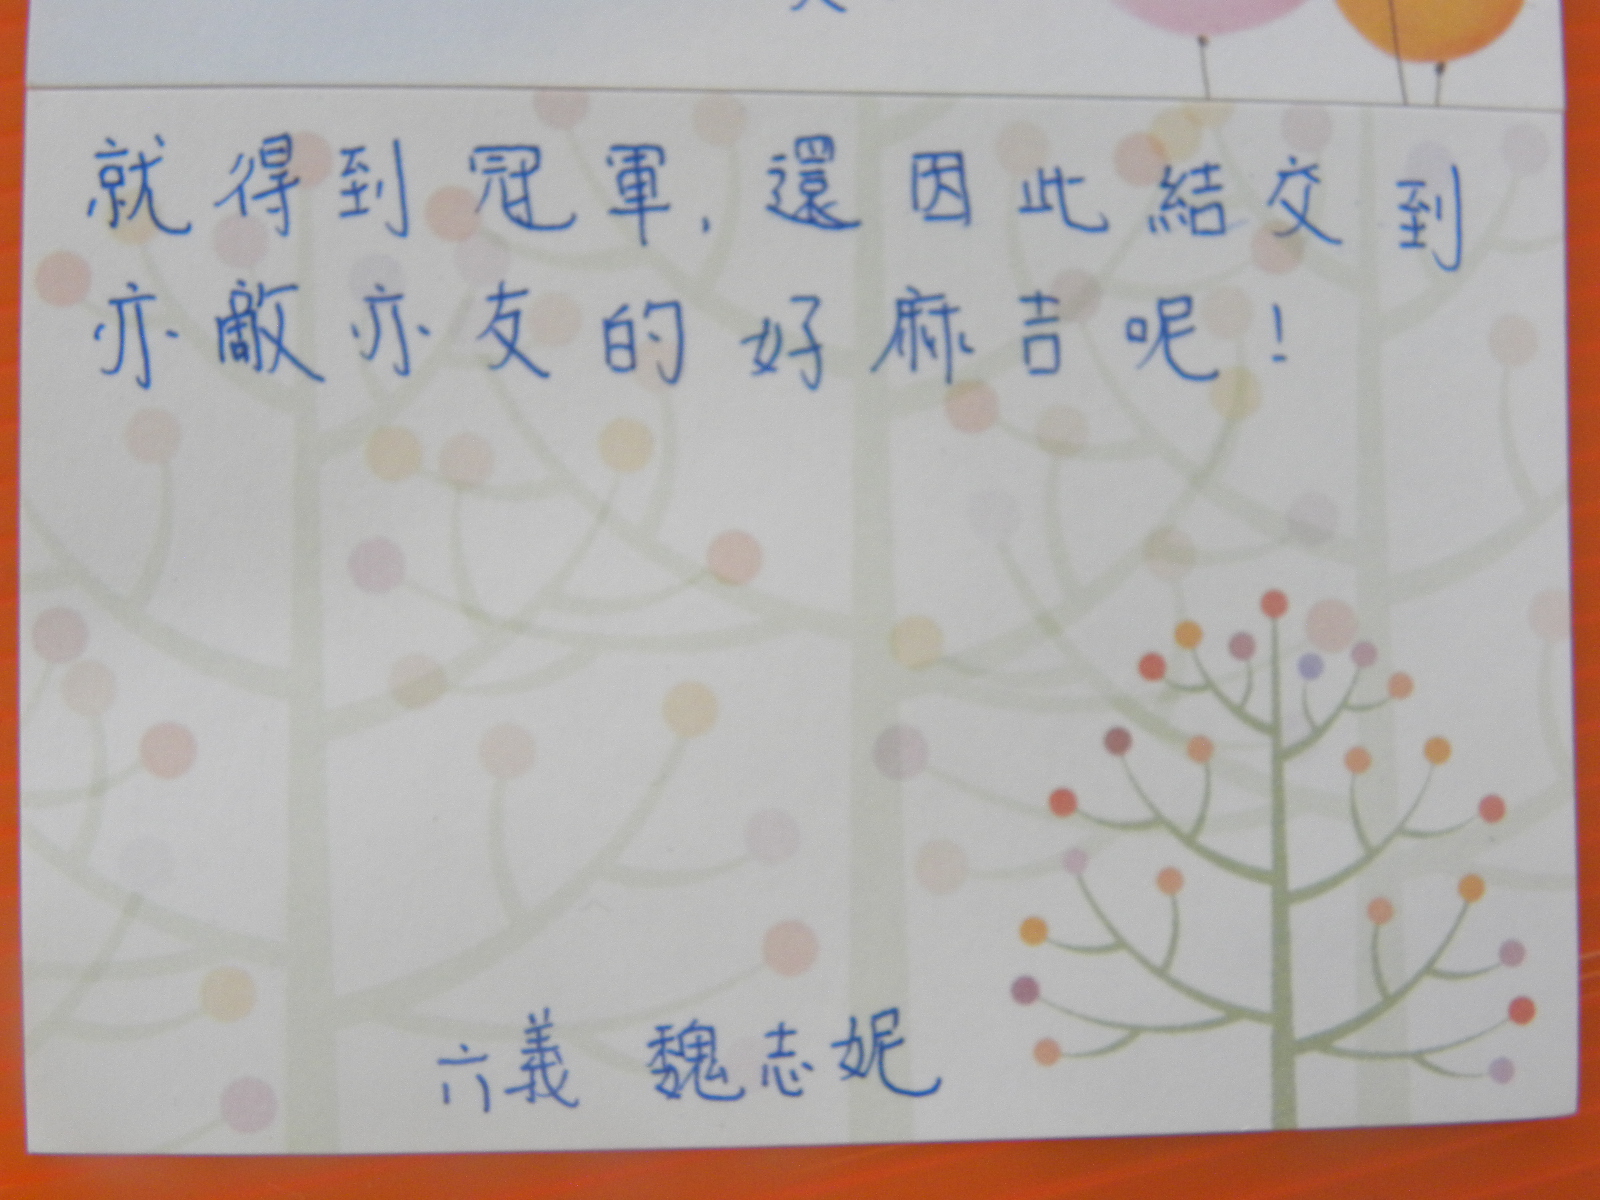 就得到冠軍，還因此結交到
亦敵亦友的好麻吉呢！
六義 魏志妮